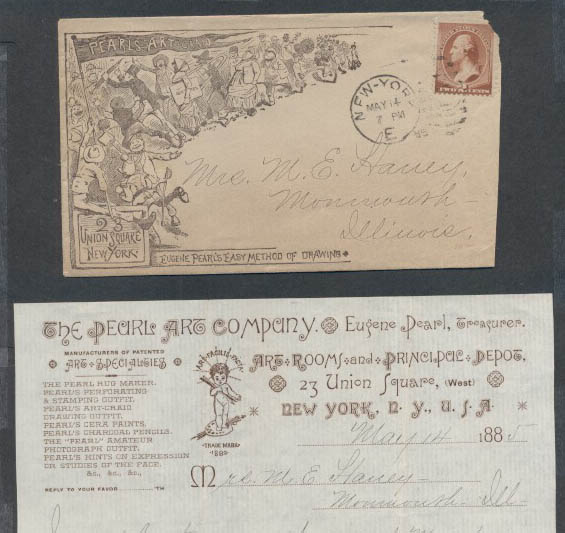 PEARL'S ART
NEW-YORK
MAY 14
7 PM
E
85
TWO CENTS
Mrs. M. E. Haney,
Monmouth-
Illinois.
23
UNION SQUARE
NEW YORK.
EUGENE PEARL'S EASY METHOD OF DRAWING
The PEARL ART COMPANY. Eugene Pearl, Treasurer.
MANUFACTURERS OF PATENTED
ART SPECIALTIES
THE PEARL RUG MAKER.
PEARL'S PERFORATING
& STAMPING OUTFIT,
PEARL'S ART-GRAID
DRAWING OUTFIT,
PEARL'S CERA PAINTS,
PEARL'S CHARCOAL PENCILS.
THE "PEARL" AMATEUR
PHOTOGRAPH OUTFIT,
PEARL'S HINTS ON EXPRESSION
OR STUDIES OF THE FACE.
&c., &c., &c.,
REPLY TO YOUR FAVOR TH
TRADE MARK
ART ROOMS and PRINCIPAL DEPOT,
23 Union Square, (West)
NEW YORK, N. Y., U. S. A.
May 14 1885
Mrs. M. E. Haney-
Monmouth- Ill-